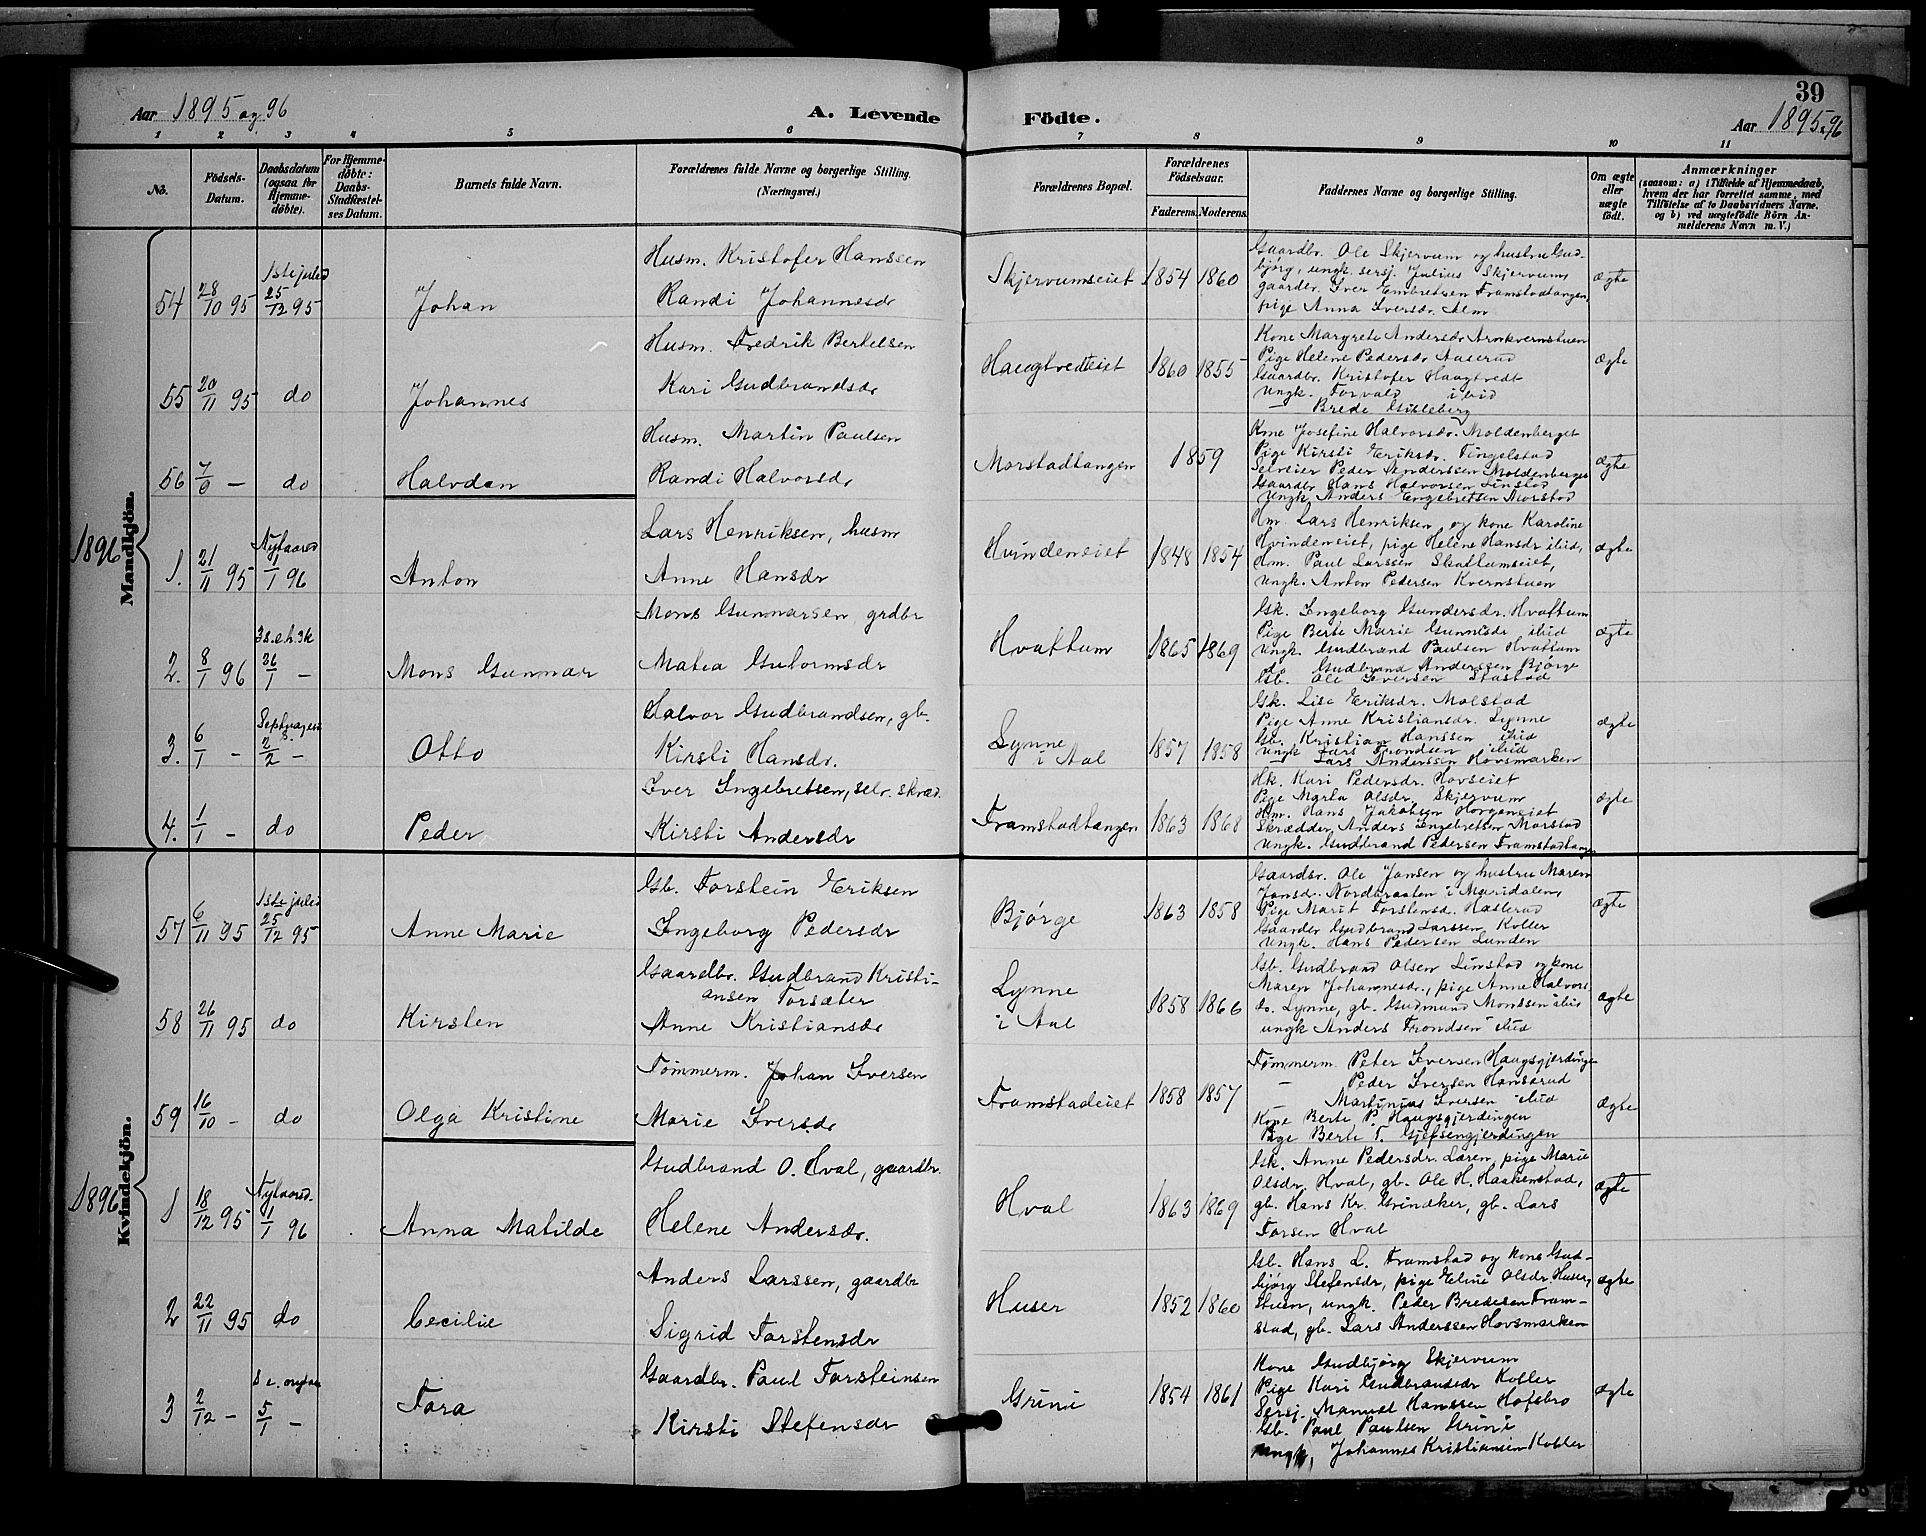 39
Aar 1895 og 96
A. Levende Fødte.
Aar 1895 96
1 2 3 4 5 6 7 8 9 10 11
No.
Fødsels-
Datum.
Daabsdatum
(ogsaa for
Hjemme-
døbte).
For Hjemme-
døbte:
Daabs-
Stadfæstel-
ses Datum.
Barnets fulde Navn.
Forældrenes fulde Navne og borgerlige Stilling.
(Næringsvei.)
Forældrenes Bopæl.
Forældrenes
Fødselsaar.
Faderens. Moderens.
Faddernes Navne og borgerlige Stilling.
Om ægte
eller
uægte
født.
Anmærkninger
(saasom: a) i Tilfælde af Hjemmedaab,
hvem der har forrettet samme, med
Tilføielse af to Daabsvidners Navne.
og b) ved uægtefødte Børn An-
melderens Navn m. V.)
Mandkjøn.
1896
54 28/10 95
1ste juled
25/12 95
Johan
Husm. Kristofer Hanssen
Randi Johannesdr
Skjervumseiet 1854 1860
Gaardbr. Ole Skjervum og hustru Gud-
bjørg, ungk. sersj. Julius Skjervum,
gaardbr. Iver Embretsen Framstadtangen,
pige Anna Iversdr. Alm
ægte
55 20/11 95 do
Johannes
Husm. Fredrik Bertelsen
Kari Gudbrandsdr
Haugtvedteiet 1860 1855
Kone Margrete Andersdr
Pige Helene Pedersdr Aaserud
Gaardbr. Kristofer Haugtvedt
Ungk. Torvald ibid
— Brede Gisleberg
ægte
56 7/9 — do
Halvdan
Husm. Martin Paulsen
Randi Halvorsdr
Morstadtangen 1859
Kone Josefine Halvorsdr. Moldenberget
Pige Kirsti Eriksdr. Tingelstad
Selveier Peder Anderssen Moldenberget
Gaardbr Hans Halvorsen Linstad
Ungk. Anders Engebretsen Morstad
ægte
1. 21/11 95
Nytaarsd
1/1 96
Anton
Lars Henriksen, husm
Anne Hansdr
Hvindeneiet 1848 1854
Hm. Lars Henriksen og kone Karoline
Hvindeneiet, pige Helene Hansdr ibid,
Hm. Paul Larssen Skattumseiet,
Ungk. Anton Pedersen Kvernstuen
ægte
2. 8/1 96
3 s. e. h. 3k
26/1 —
Mons Gunnar
Mons Gunnarsen grdbr
Matea Gutormsdr
Hvattum 1865 1869
Gk. Ingeborg Gundersdr. Hvattum
Pige Berte Marie Gunnesdr ibid
Ungk. Gudbrand Paulsen Hvattum
do Gudbrand Anderssen Bjørge
Gb. Ole Iversen Stastad
ægte
3. 6/1 —
2/2 —
Otto
Halvor Gudbrandsen, gb.
Kirsti Hansdr.
Lynne
i Aal 1857 1858
Gk. Lise Eriksdr. Molstad
Pige Anne Kristiansdr. Lynne
Gb. Kristian Hanssen ibid
Ungk Lars Trondsen ibid
Lars Anderssen Hovsmarken
ægte
4. 1/1 — do
Peder
Iver Ingebretsen, selv. skræd.
Kirsti Andersdr
Framstadtangen 1863 1868
Hk. Kari Pedersdr. Hovseiet
Pige Marta Olsdr. Skjervum
Hm. Hans Jakobsen Horgeneiet
Skrædder Anders Ingebretsen Morstad
Ungk. Gudbrand Pedersen Framstadtangen
ægte
Kvindekjøn.
1896
57 6/11 95
1ste juled
25/12 95
Anne Marie
Gb. Torstein Eriksen
Ingeborg Pedersdr
Bjørge 1863 1858
Gaardbr. Ole Jansen og hustru Maren
Jansdr. Nordbraaten i Maridalen,
Pige Marit Torstensdr. Hasterud
Gaardbr Gudbrand Larssen Koller
Ungk. Hans Pedersen Lunden
ægte
58 26/11 95 do
Kirsten
Gaardbr. Gudbrand Kristi-
ansen Torsæter
Anne Kristiansdr
Lynne
i Aal 1858 1866
Gb. Gudbrand Olsen Linstad og kone
Maren Johannesdr., pige Anne Halvors
dr. Lynne, gb. Gudmund Monssen ibid
ungk Anders Trondsen ibid
ægte
59 16/10 — do
Olga Kristine
Tømmerm. Johan Iversen
Marie Iversdr
Framstadeiet 1858 1857
Tømmerm. Peter Iversen Haugsgjerdingen
— Peder Iversen Hansarud
— Martinius Iversen ibid
Kone Berte P. Haugsgjerdingen
Pige Berte T. Gjefsengjerdingen
ægte
1 18/12 95
Nytaarsd.
1/1 96
Anna Matilde
Gudbrand O. Hval, gaardbr.
Helene Andersdr.
Hval 1863 1869
Gk. Anne Pedersdr. Læren, pige Marie
Olsdr. Hval, gb. Ole H. Haakenstad,
gb. Hans Kr. Grindaker, gb. Lars
Torsen Hval
ægte
2 22/11 95 do
Cecilie
Anders Larssen, gaardbr
Sigrid Torstensdr
Huser 1852 1860
Gb. Hans L. Framstad og kone Gud-
bjørg Stefensdr, pige Eline Olsdr. Huser,
Stuen, ungk. Peder Bredesen Fram-
stad, gb. Lars Anderssen Hovsmarken
ægte
3 2/12 —
5/1 —
Tora
Gaardbr. Paul Torsteinsen
Kirsti Stefensdr
Grini 1854 1861
Kone Gudbjørg Skjervum
Pige Kari Gudbrandsdr Koller
Sersj. Manuel Hanssen Hofsbro
Gb. Paul Paulsen Grini
Ungk. Johannes Kristiansen Koller
ægte